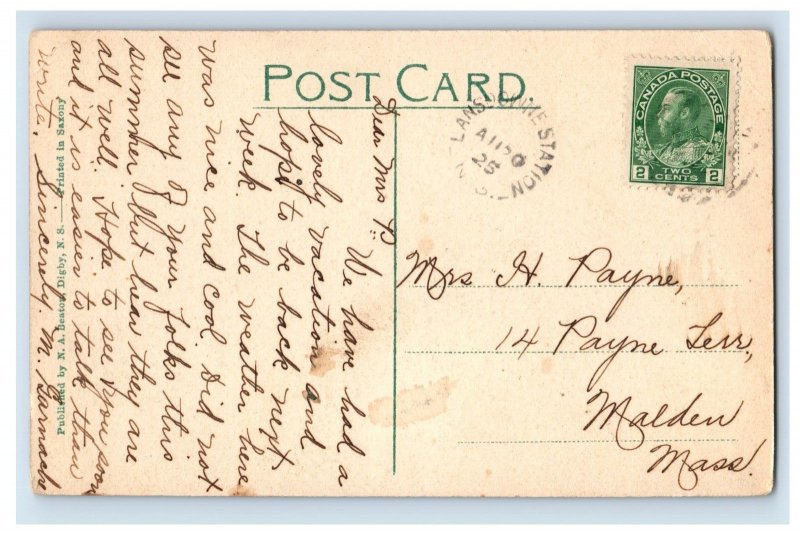 POST CARD
CANADA POSTAGE
2 TWO CENTS 2
LANSDOWNE STATION
AU 20
25
N.S.
Dear Mrs P:
We have had a
lovely vacation and
hope to be back next
week. The weather here
was nice and cool. Did not
see any of your folks this
summer but hear they are
all well. Hope to see you soon
and it is easier to talk than
write. Sincerely M.
Mrs H. Payne,
14 Payne Terr,
Malden
Mass.
Published by N. A. Beaton, Digby, N. S. — Printed in Saxony